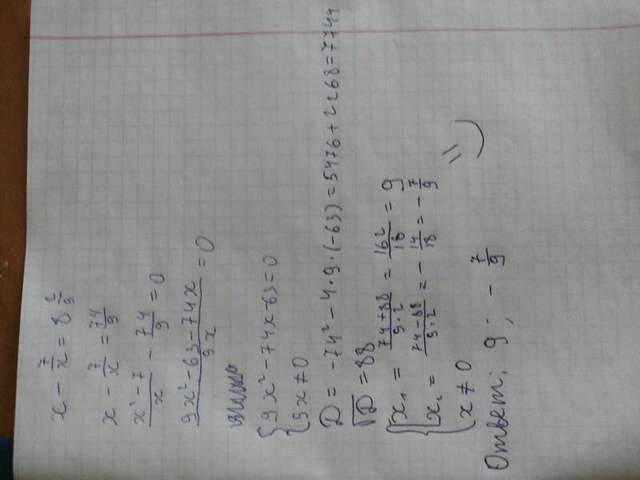 x - 7/x = 8 2/9
x - 7/x = 74/9
x² - 7/x - 74/9 = 0
9x² - 63 - 74x/9x = 0
{9x² - 74x - 63 = 0
{9x ≠ 0
D = -74² - 4·9·(-63) = 5476 + 2268 = 7744
√D = 88
x₁ = 74+88/9·2 = 162/18 = 9
x₂ = 74-88/9·2 = -14/18 = -7/9
x ≠ 0
Ответ: 9; -7/9